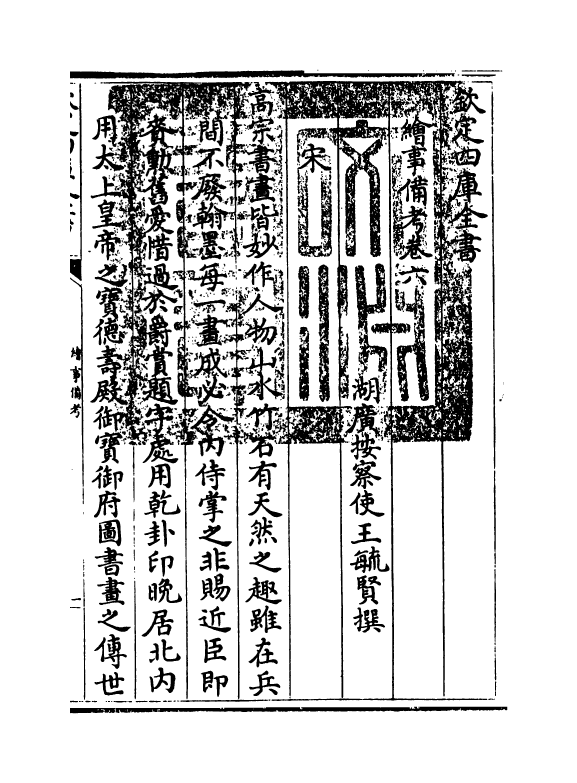 欽定四庫全書
繪事備考卷六
湖廣按察使王毓賢撰
宋
高宗書畫皆妙作人物山水竹石有天然之趣雖在兵
間不廢翰墨每一畫成必令內侍掌之非賜近臣即
賚動舊愛惜過於爵賞題字處用乾卦印晚居北內
用太上皇帝之寶德壽殿御寶御府圖書畫之傳世
繪事備考